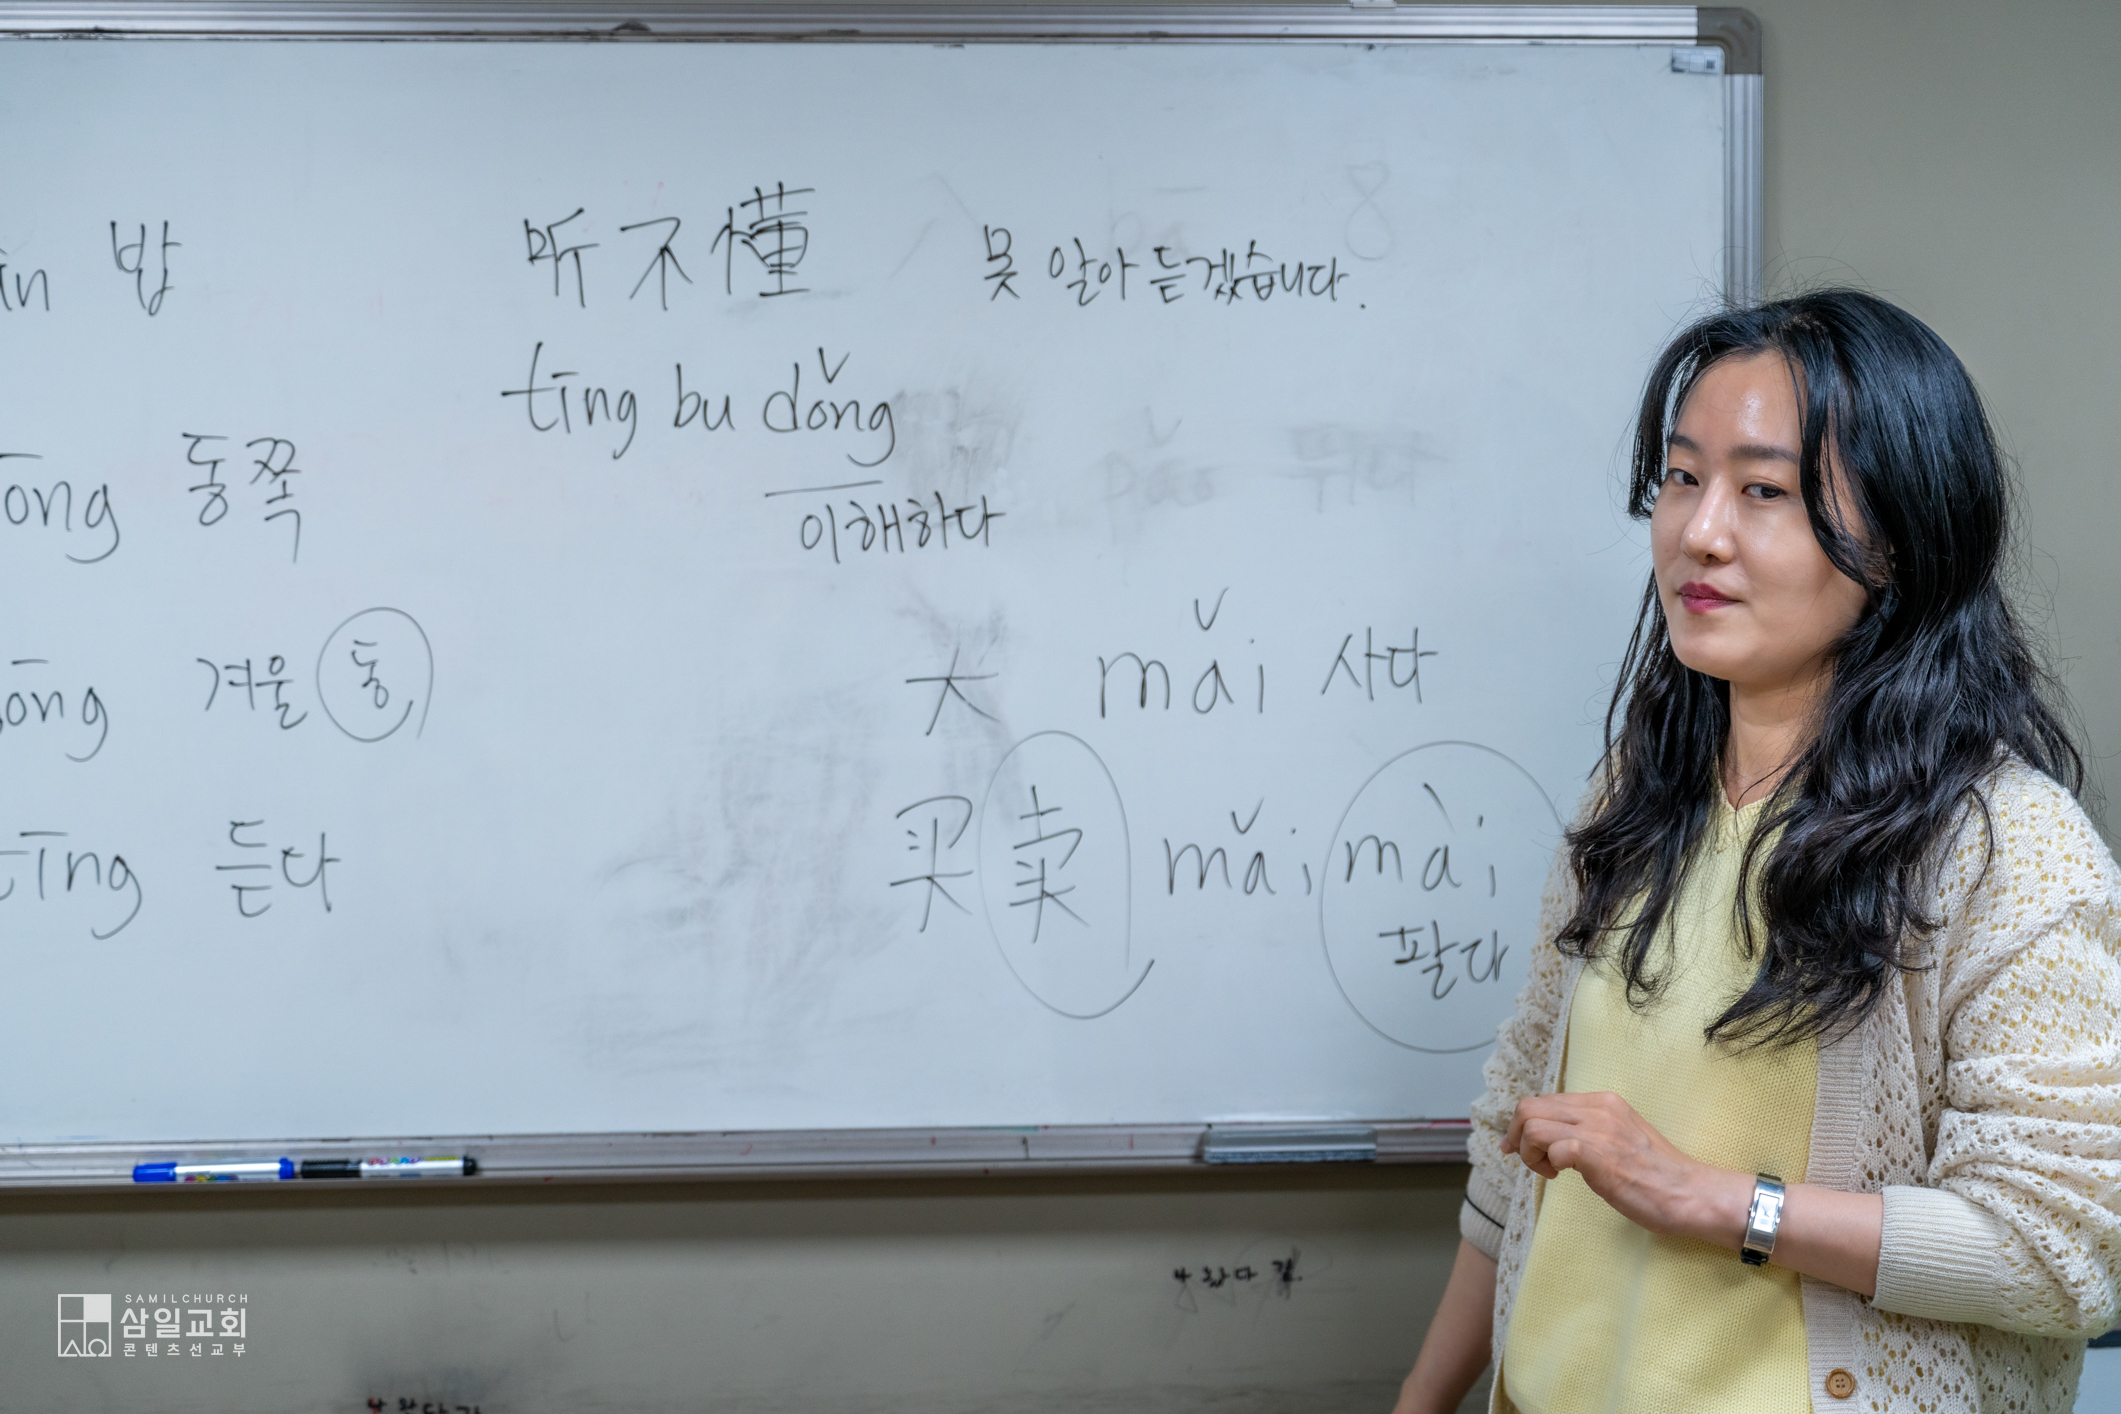 밥
听不懂 못 알아 듣겠습니다.
tīng bu dǒng
ōng 동쪽
이해하다
ōng 겨울 동
大 mǎi 사다
tīng 듣다
买卖 mǎi mài
팔다
SAMILCHURCH
삼일교회
콘텐츠선교부